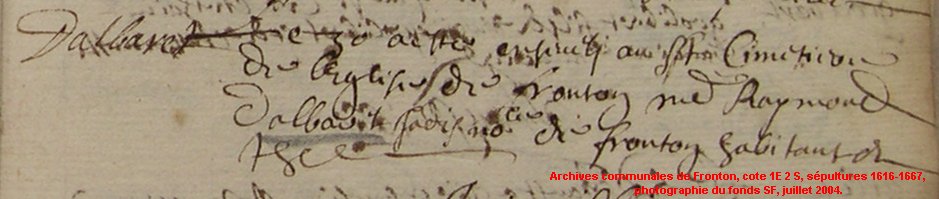 Dalbaret Le 30 aoust ensevely au Cimetiere
de leglise de fronton me Raymond
Dalbarit jadis no.re de fronton habitant
Archives communales de Fronton, cote 1E 2 S, sépultures 1616-1667,
photographie du fonds SF, juillet 2004.